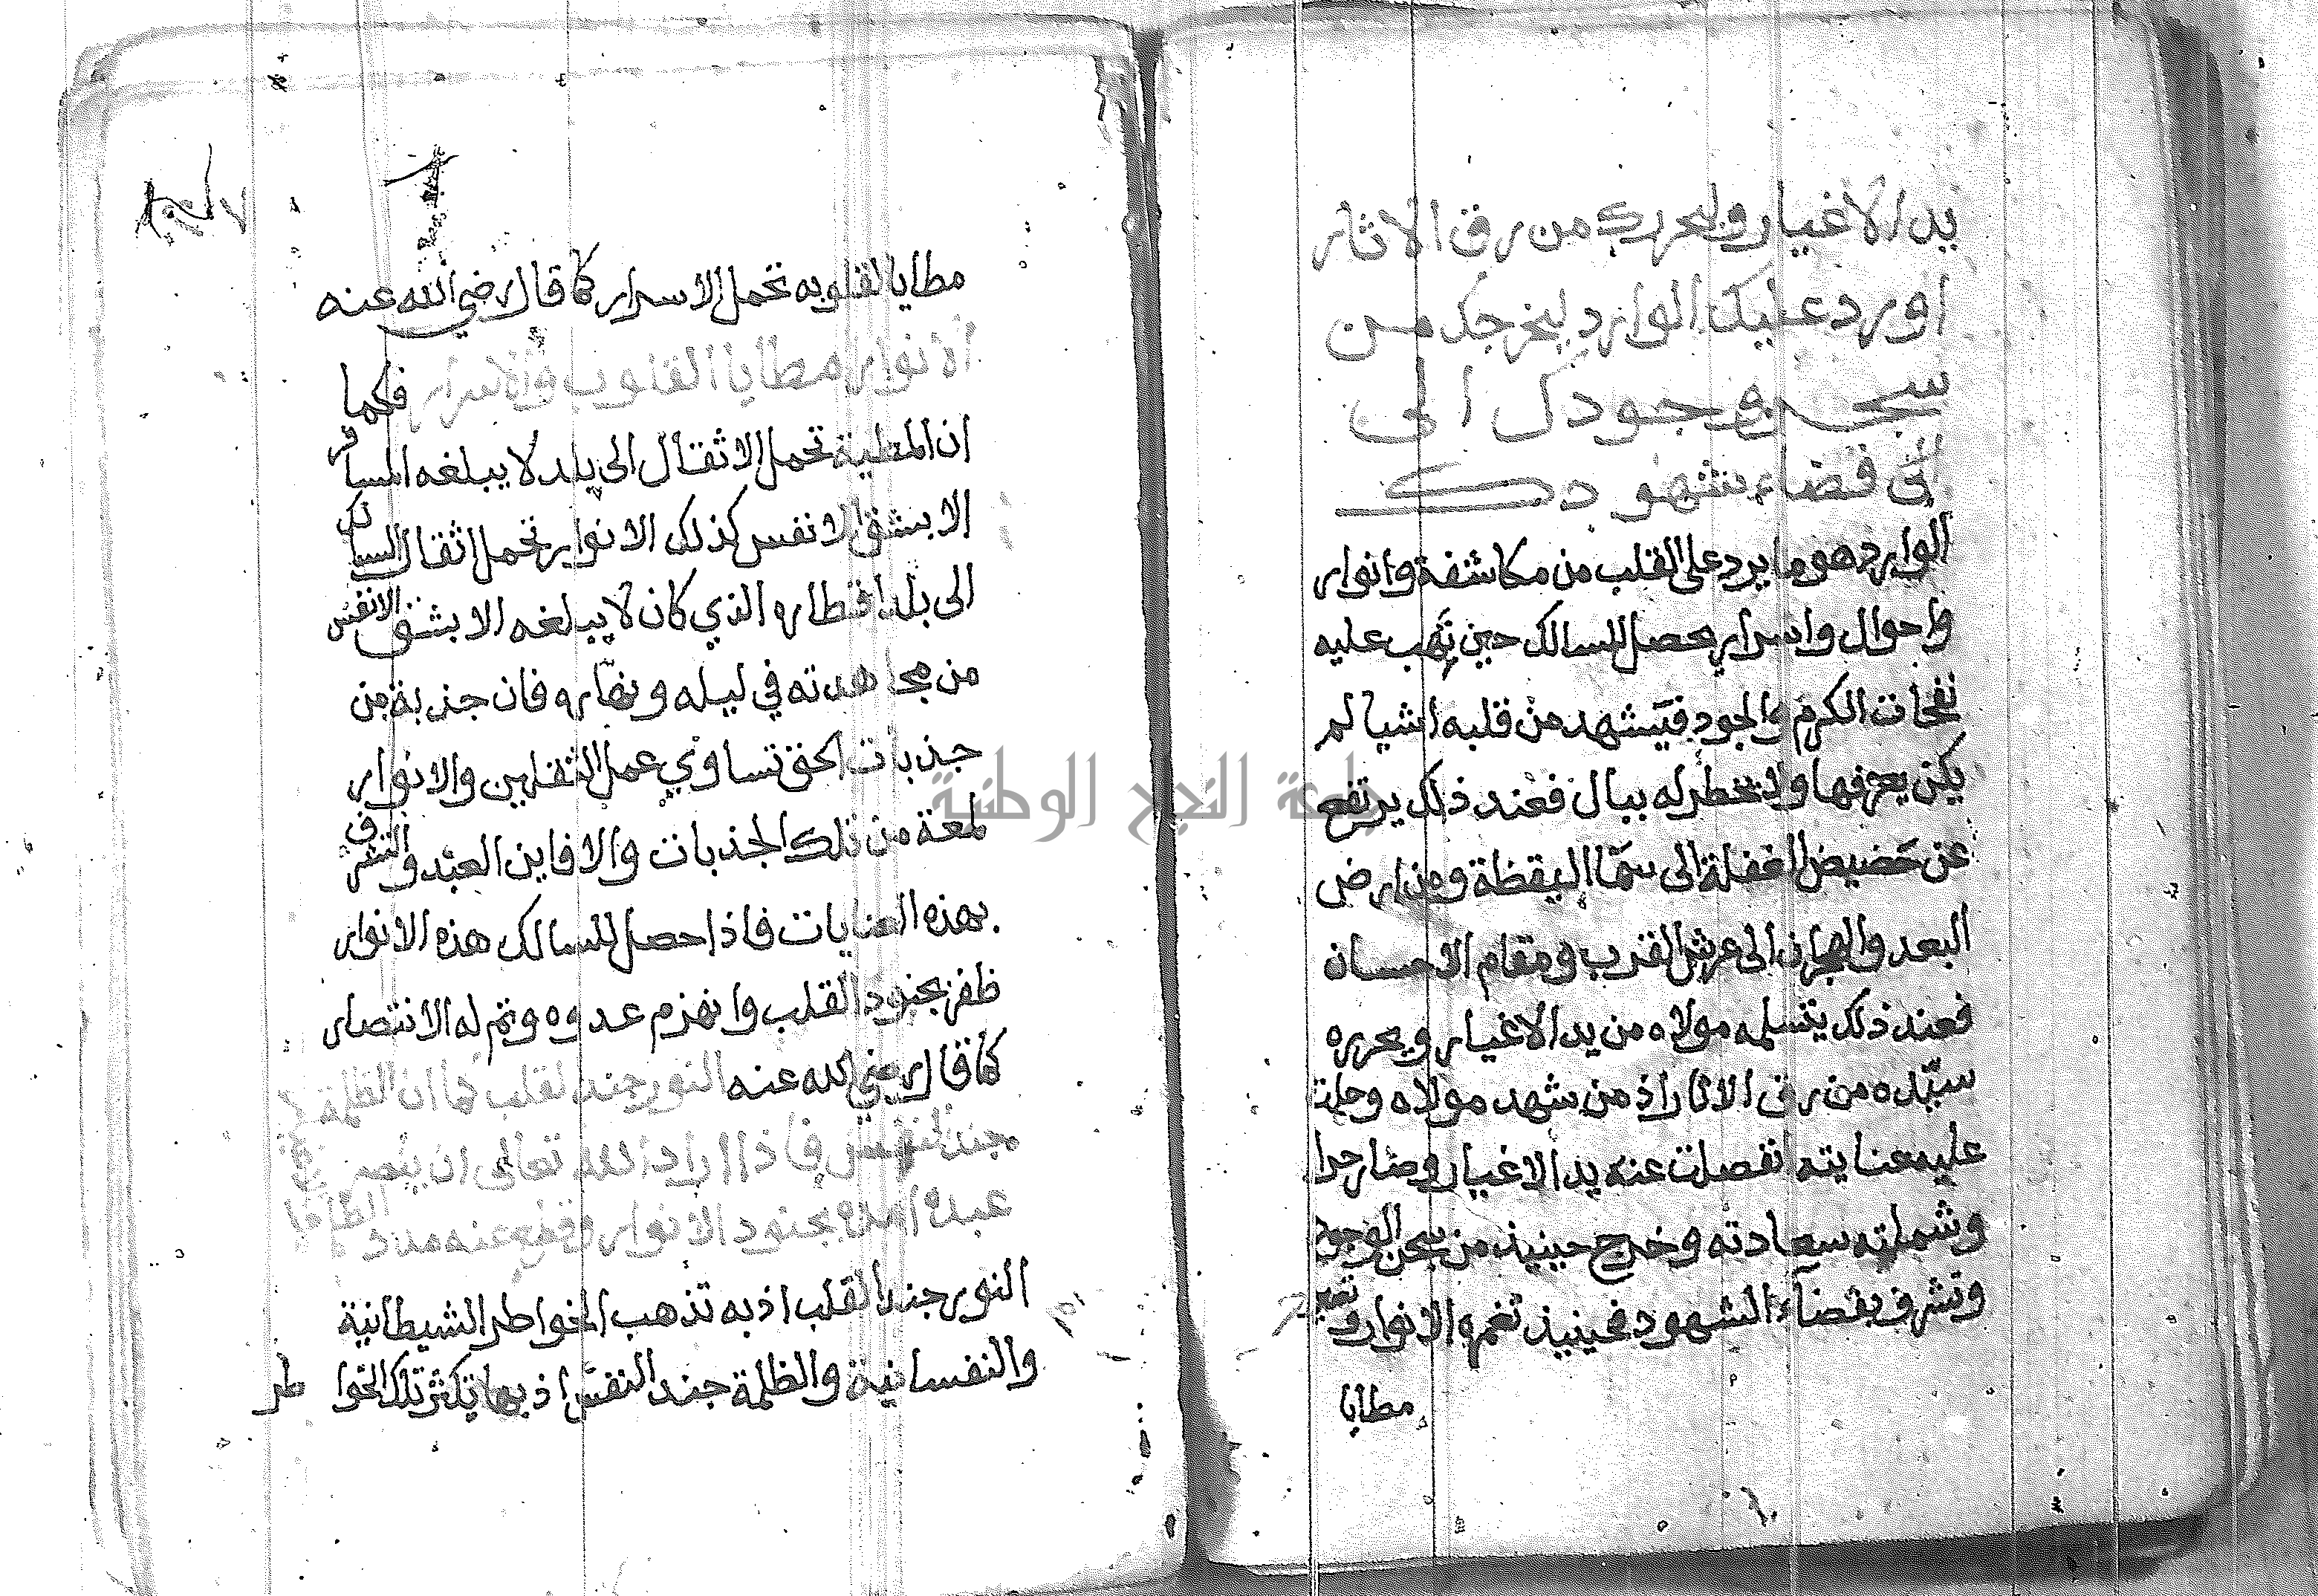 يد الاغيار وليحررك من رق الاثار
اورد عليك الوارد ليخرجك من
سجن وجودك الى
الى فضاء شهودك
الوارد هو ما يرد على القلب من مكاشفة وانوار
واحوال واسرار يحصل للسالك حين تهب عليه
نفحات الكرم والجود فيشهد من قلبه اشيا لم
يكن يعرفها ولا يخطر له ببال فعند ذلك يرتفع
عن حضيض الغفلة الى سما اليقظة ومن ارض
البعد والهجران الى عرش القرب ومقام الاحسان
فعند ذلك يتسلمه مولاه من يد الاغيار ويحرره
سيده من رق الاثار اذ من شهد مولاه وحلت
عليه عنايته انفصلت عنه يد الاغيار وصار حرا
وشملته سعادته وخرج حينيذ من سجن الوجود
وتشرف بفضاء الشهود فحينيذ تغمره الانوار وتصير
مطايا
مطايا لقلوبه تحمل الاسرار كما قال رضي الله عنه
الانوار مطايا القلوب والاسرار فكما
ان المطية تحمل الاثقال الى بلد لا يبلغه المسافر
الا بشق الانفس كذلك الانوار تحمل اثقال السالك
الى بلد اقطاره الذي كان لا يبلغه الا بشق الانفس
من مجاهدته في ليله ونهاره فان جذبة من
جذبات الحق تساوي عمل الثقلين والانوار
لمعة من تلك الجذبات والا فاين العبد والتشرف
بهذه العنايات فاذا حصل للسالك هذه الانوار
ظفر بجنود القلب وانهزم عدوه وتم له الانتصار
كما قال رضي الله عنه النور جند لقلب كما ان الظلمة
جند النفس فاذا اراد الله تعالى ان ينصر
عبده امده بجنود الانوار وقطع عنه مدد
النور جند القلب اذ به تذهب الخواطر الشيطانية
والنفسانية والظلمة جند النفس اذ بها تكثر تلك الخواطر
جامعة النجاح الوطنية